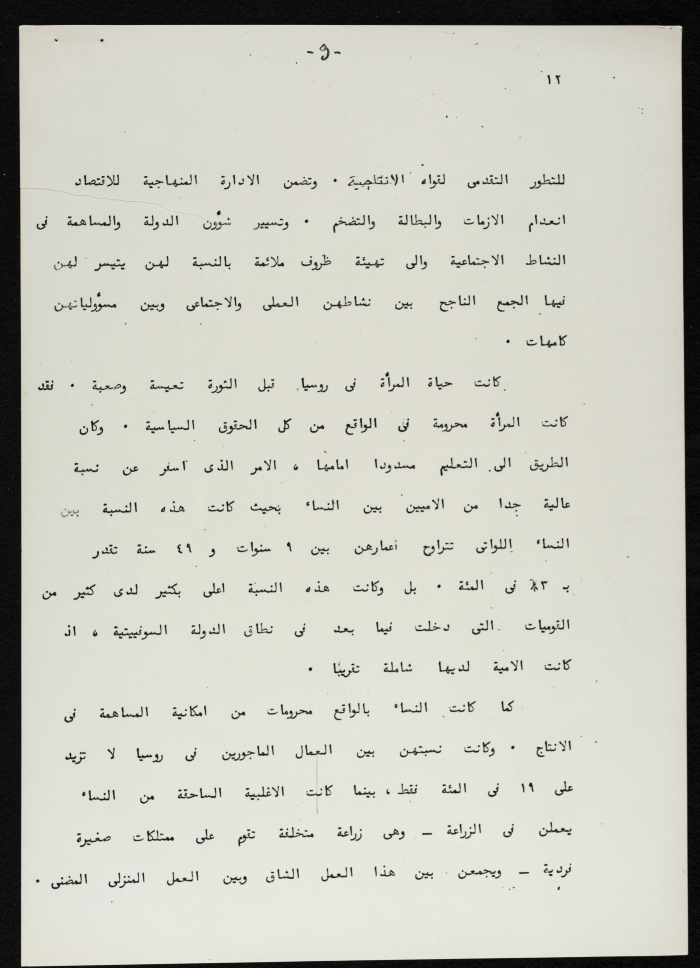 -9-
١٢
للتطور التقدمى لقواه الانتاجية . وتضمن الادارة المنهاجية للاقتصاد
انعدام الازمات والبطالة والتضخم . وتسيير شؤون الدولة والمساهمة فى
النشاط الاجتماعية والى تهيئة ظروف ملائمة بالنسبة لهن يتيسر لهن
فيها الجمع الناجح بين نشاطهن العملى والاجتماعى وبين مسؤولياتهن
كامهات .
كانت حياة المرأة فى روسيا قبل الثورة تعيسة وصعبة . فقد
كانت المرأة محرومة فى الواقع من كل الحقوق السياسية . وكان
الطريق الى التعليم مسدودا امامها ، الامر الذى اسفر عن نسبة
عالية جدا من الاميين بين النساء بحيث كانت هذه النسبة بين
النساء اللواتى تتراوح اعمارهن بين ٩ سنوات و ٤٩ سنة تقدر
بـ فى المئة . بل وكانت هذه النسبة اعلى بكثير لدى كثير من
القوميات التى دخلت فيما بعد فى نطاق الدولة السوفييتية ، اذ
كانت الامية لديها شاملة تقريبا .
كما كانت النساء بالواقع محرومات من امكانية المساهمة فى
الانتاج . وكانت نسبتهن بين العمال الماجورين فى روسيا لا تزيد
على ١٩ فى المئة فقط ، بينما كانت الاغلبية الساحقة من النساء
يعملن فى الزراعة ــ وهى زراعة متخلفة تقوم على ممتلكات صغيرة
فردية ــ ويجمعن بين هذا العمل الشاق وبين العمل المنزلى المضنى .